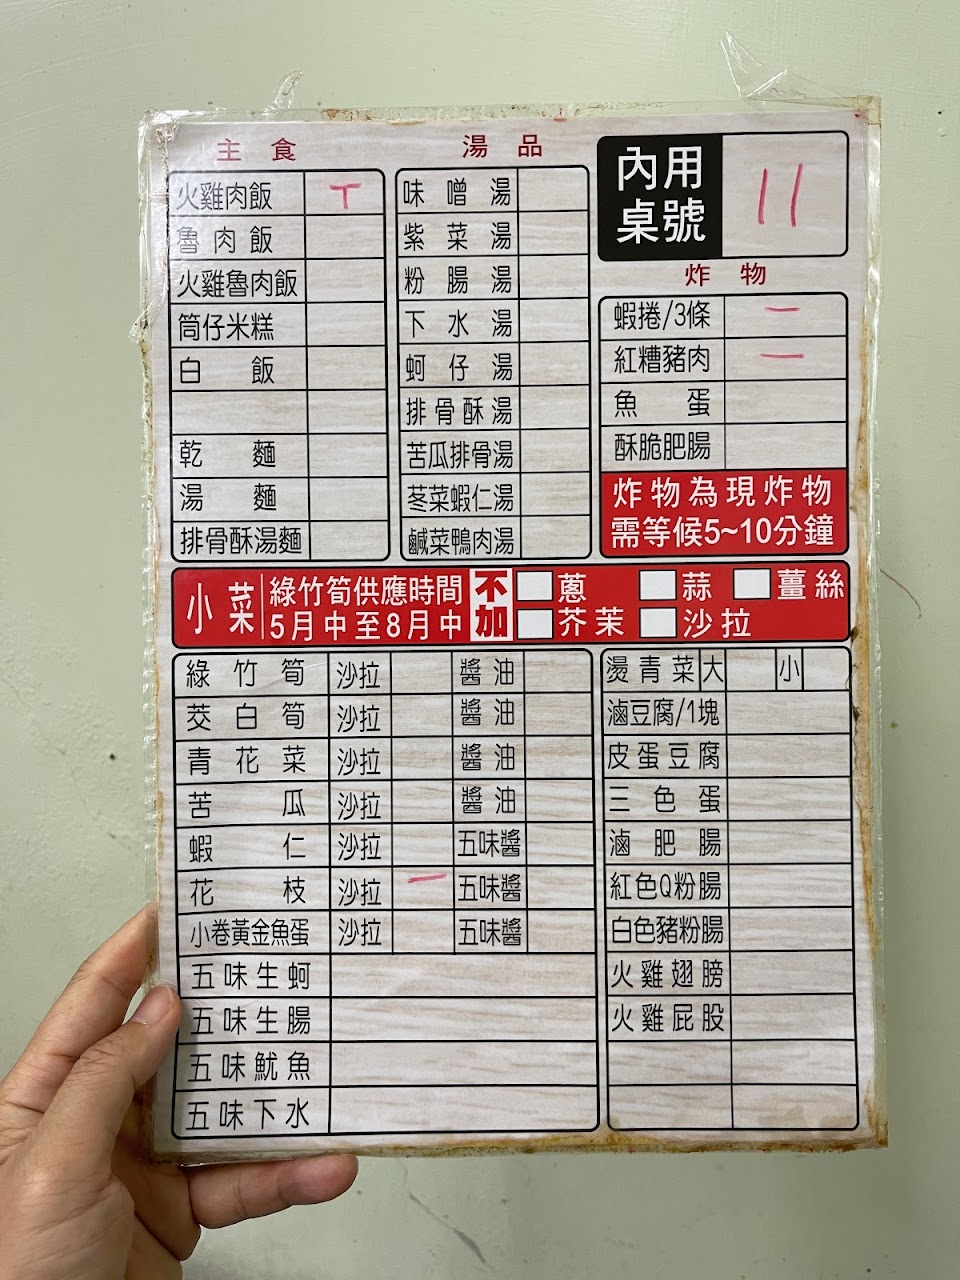 主食
火雞肉飯 丅
魯肉飯
火雞魯肉飯
筒仔米糕
白飯
乾麵
湯麵
排骨酥湯麵
湯品
味噌湯
紫菜湯
粉腸湯
下水湯
蚵仔湯
排骨酥湯
苦瓜排骨湯
苳菜蝦仁湯
鹹菜鴨肉湯
內用
桌號
11
炸物
蝦捲/3條 一
紅糟豬肉 一
魚蛋
酥脆肥腸
炸物為現炸物
需等候5~10分鐘
小菜
綠竹筍供應時間
5月中至8月中
不加
蔥 蒜 薑絲
芥茉 沙拉
綠竹筍 沙拉 醬油
茭白筍 沙拉 醬油
青花菜 沙拉 醬油
苦瓜 沙拉 醬油
蝦仁 沙拉 五味醬
花枝 沙拉 一 五味醬
小卷黃金魚蛋 沙拉 五味醬
五味生蚵
五味生腸
五味魷魚
五味下水
燙青菜 大 小
滷豆腐/1塊
皮蛋豆腐
三色蛋
滷肥腸
紅色Q粉腸
白色豬粉腸
火雞翅膀
火雞屁股